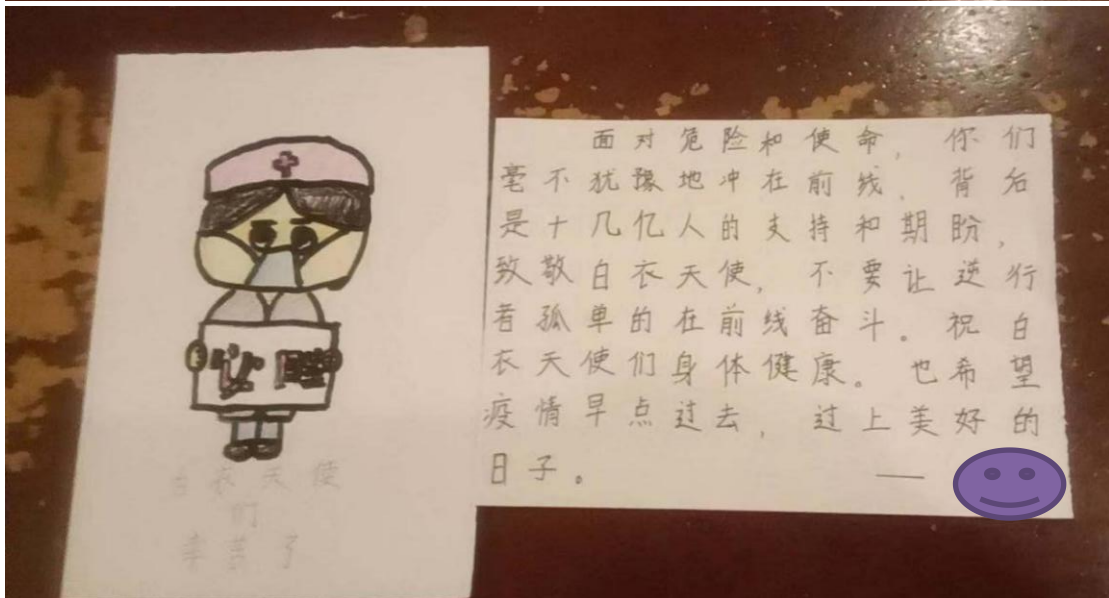 必胜
白衣天使
们
辛苦了
面对危险和使命，你们
毫不犹豫地冲在前线，背后
是十几亿人的支持和期盼，
致敬白衣天使，不要让逆行
者孤单的在前线奋斗。祝白
衣天使们身体健康。也希望
疫情早点过去，过上美好的
日子。 ——